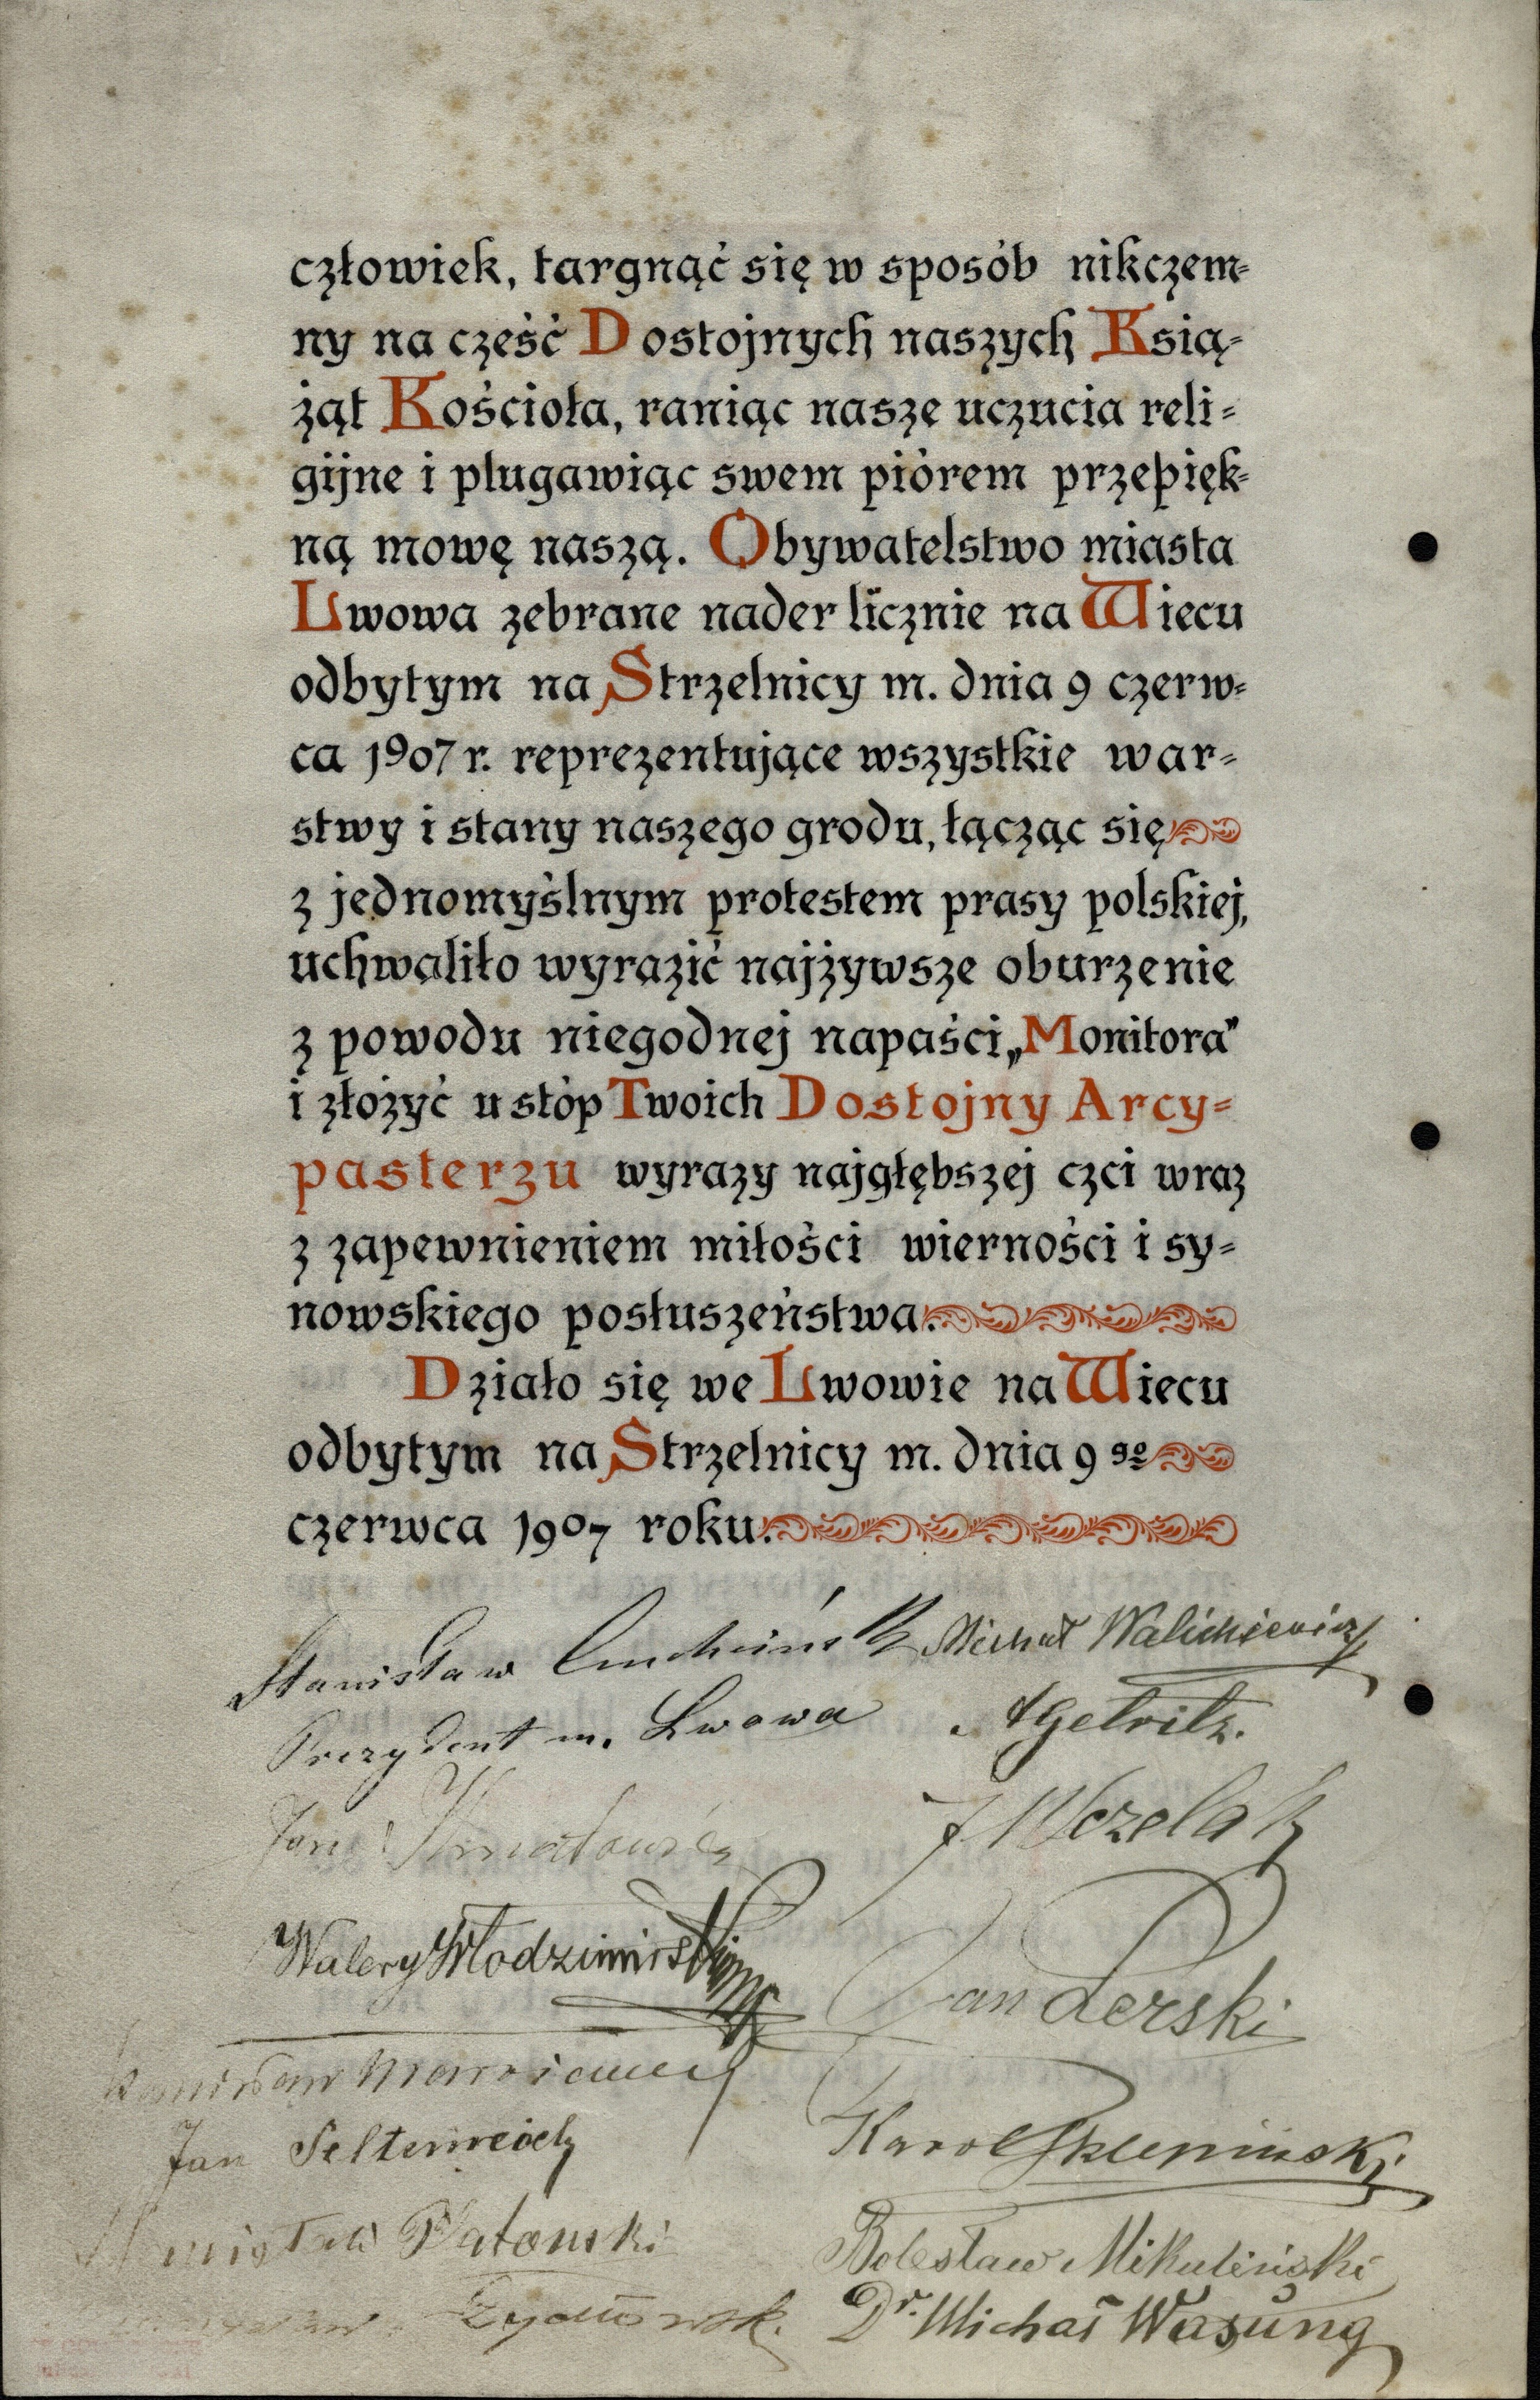 człowiek, targnąć się w sposób nikczem=
ny na cześć Dostojnych naszych Ksią=
żąt Kościoła, raniąc nasze uczucia reli=
gijne i plugawiąc swem piórem przepięk=
ną mowę naszą. Obywatelstwo miasta
Lwowa zebrane nader licznie na Wiecu
odbytym na Strzelnicy m. dnia 9 czerw=
ca 1907 r. reprezentujące wszystkie war=
stwy i stany naszego grodu, łącząc się
z jednomyślnym protestem prasy polskiej,
uchwaliło wyrazić najżywsze oburzenie
z powodu niegodnej napaści „Monitora"
i złożyć u stóp Twoich Dostojny Arcy=
pasterzu wyrazy najgłębszej czci wraz
z zapewnieniem miłości wierności i sy=
nowskiego posłuszeństwa.
Działo się we Lwowie na Wiecu
odbytym na Strzelnicy m. dnia 9 go
czerwca 1907 roku.
Stanisław Ciuchciński Michał Walichiewicz
Prezydent m. Lwowa
Jan
J Wczelak
Walery Włodzimirski
Jan Lerski
Jan
Karol Sklepiński
Bolesław Mikuliński
Żyatowsk
Dr. Michał Wasung